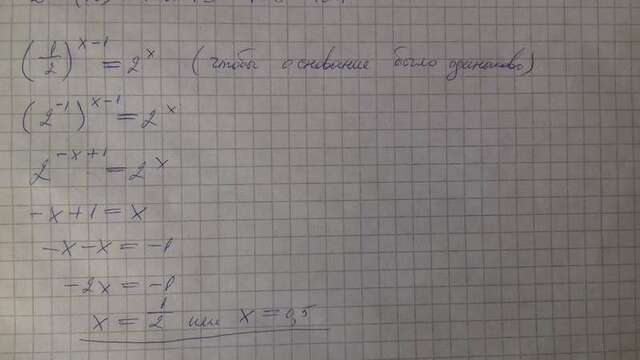 (1/2)^(x-1) = 2^x (чтобы основание было одинаково)
(2^(-1))^(x-1) = 2^x
2^(-x+1) = 2^x
-x+1 = x
-x-x = -1
-2x = -1
x = 1/2 или x = 0,5